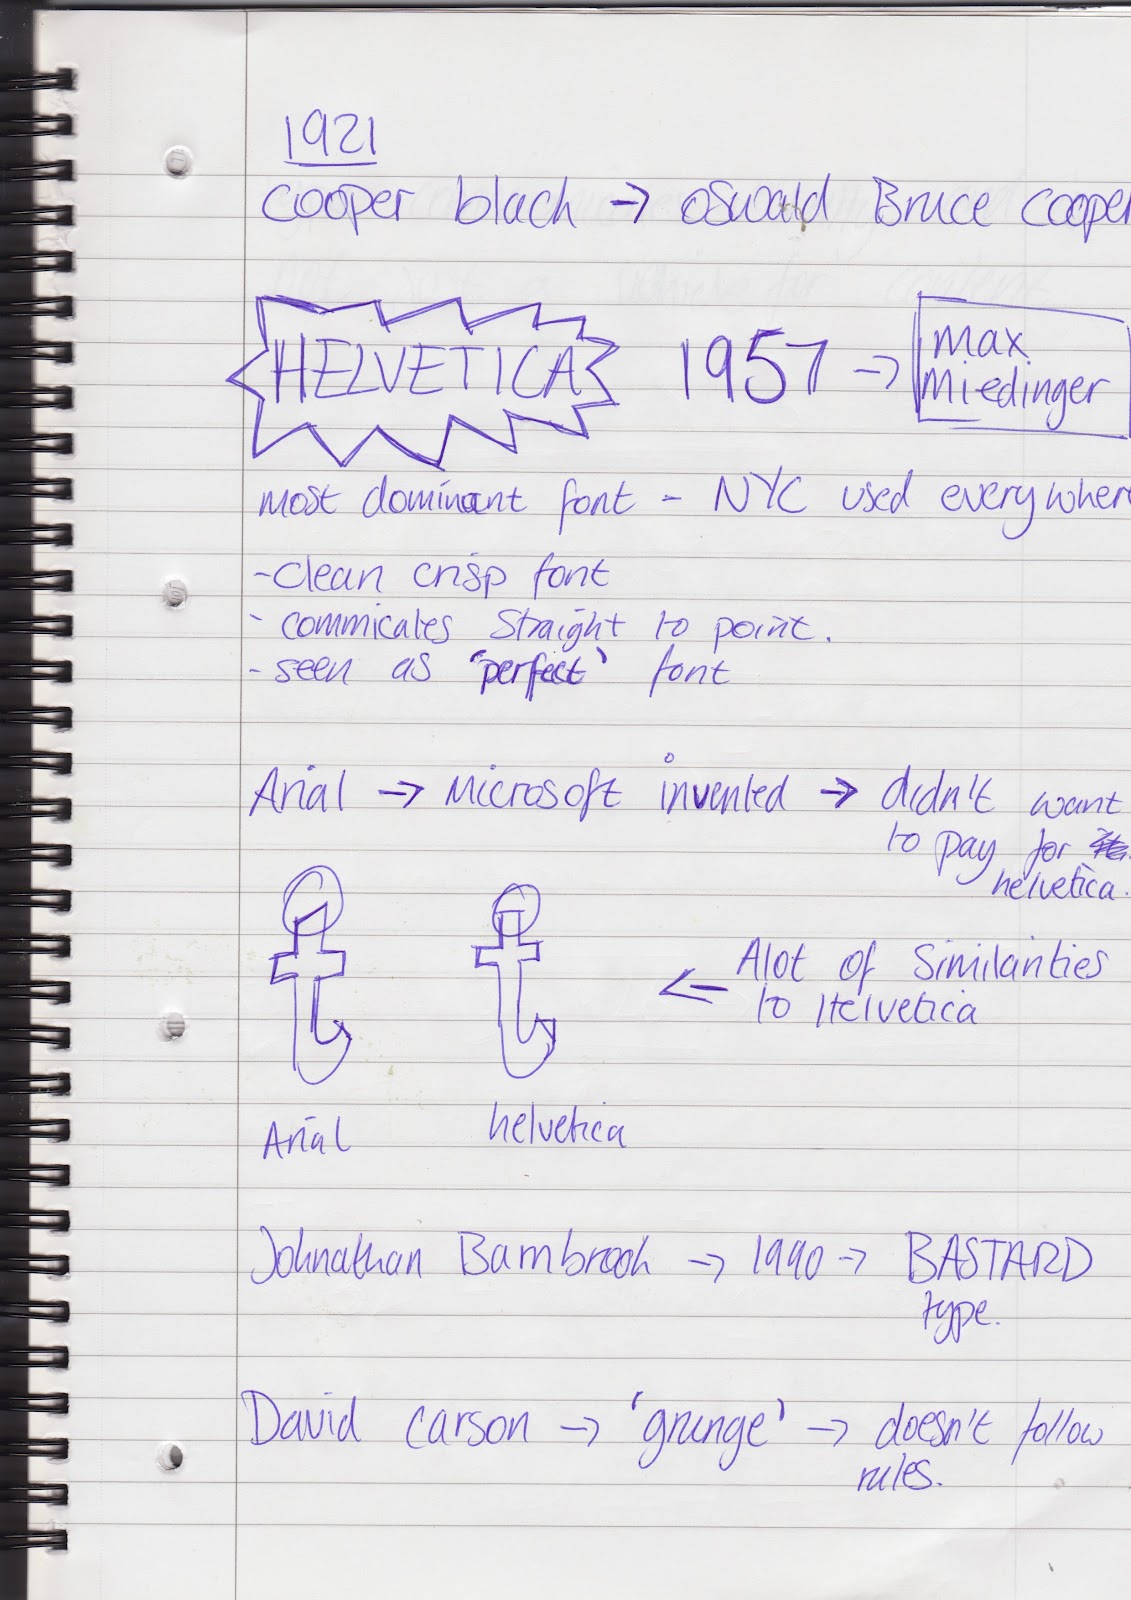 1921
Cooper black → oswald Bruce Cooper
HELVETICA 1957 → max
miedinger
most dominant font - NYC used everywhere
- Clean crisp font
- commicates straight to point.
- seen as 'perfect' font
Arial → Microsoft invented → didn't want
to pay for
helvetica.
t t ← Alot of Similarities
to Helvetica
Arial helvetica
Johnathan Bambrook → 1990 → BASTARD
type.
David Carson → 'grunge' → doesn't follow
rules.